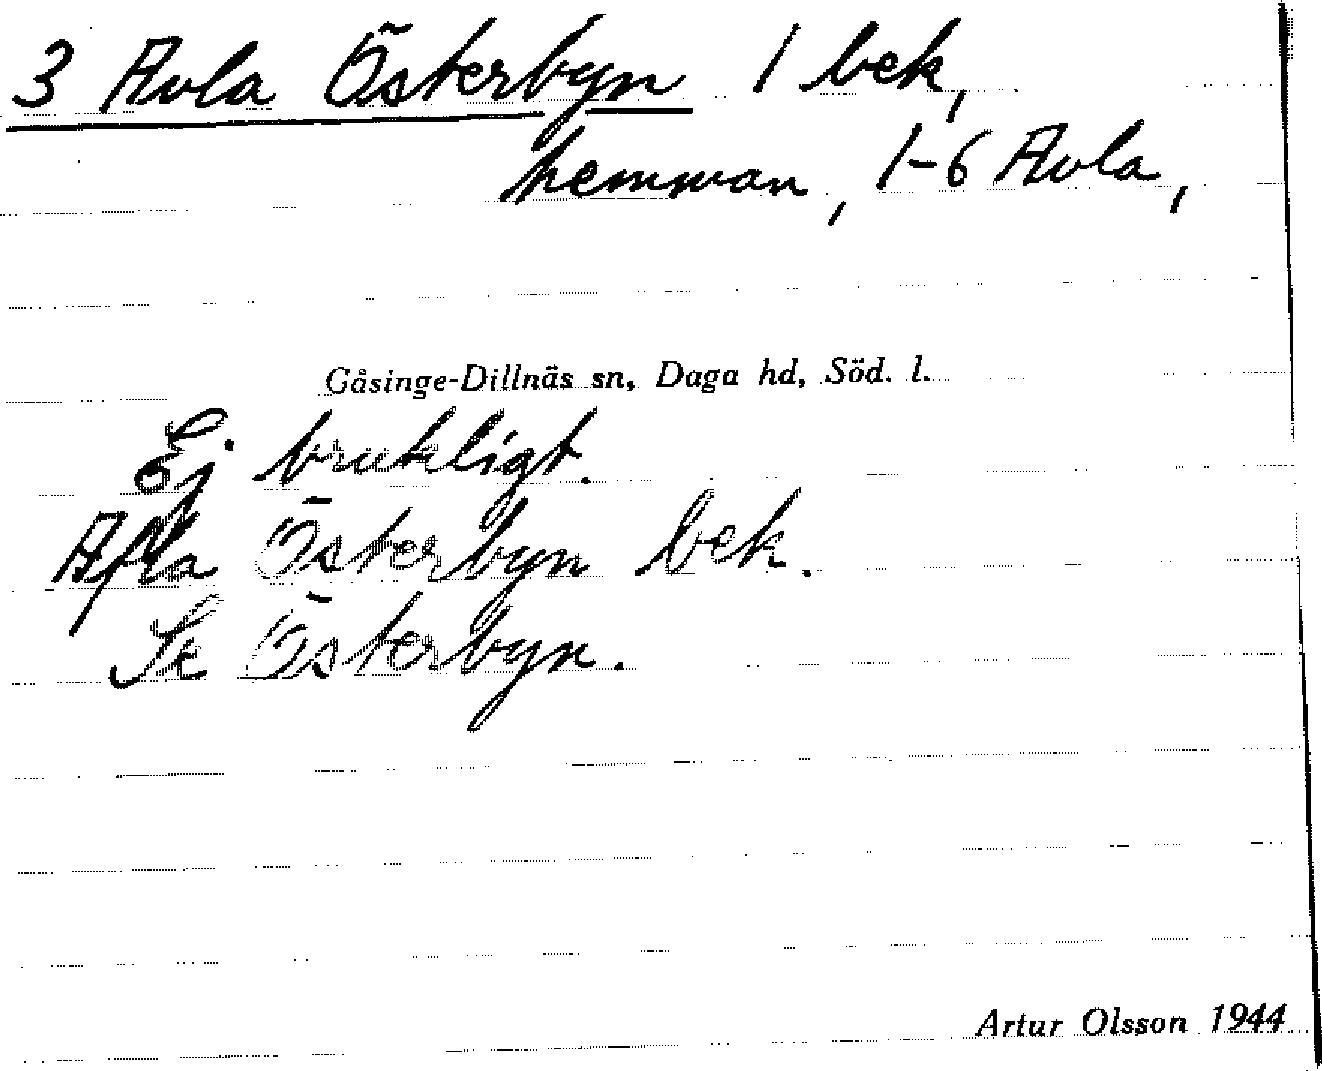 3 Avla Österbyn 1 bek,
hemman, 1-6 Avla,
Gåsinge-Dillnäs sn, Daga hd, Söd. l.
Ej brukligt.
Afla Österbyn bek.
Se Österbyn.
Artur Olsson 1944